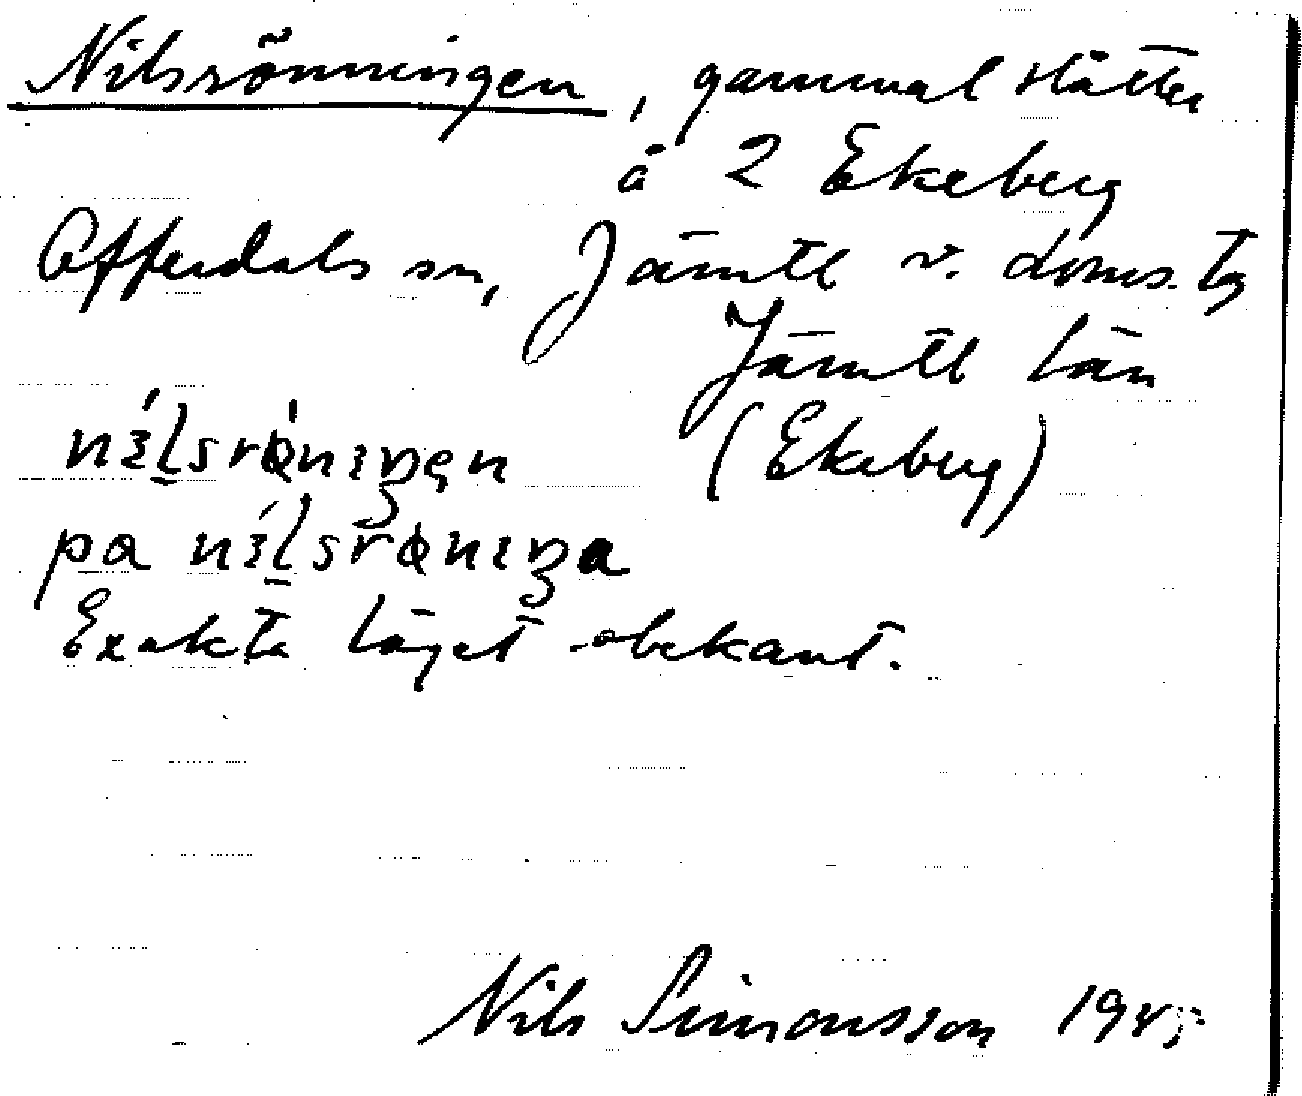 Nilsrönningen, gammal slåtter
å 2 Ekeberg
Offerdals sn, Jämtl v. doms. tg
Jämtl län
nílsrǿnıŋen (Ekeberg)
pa nílsrǿnıŋa
Exakta läget obekant.
Nils Simonsson